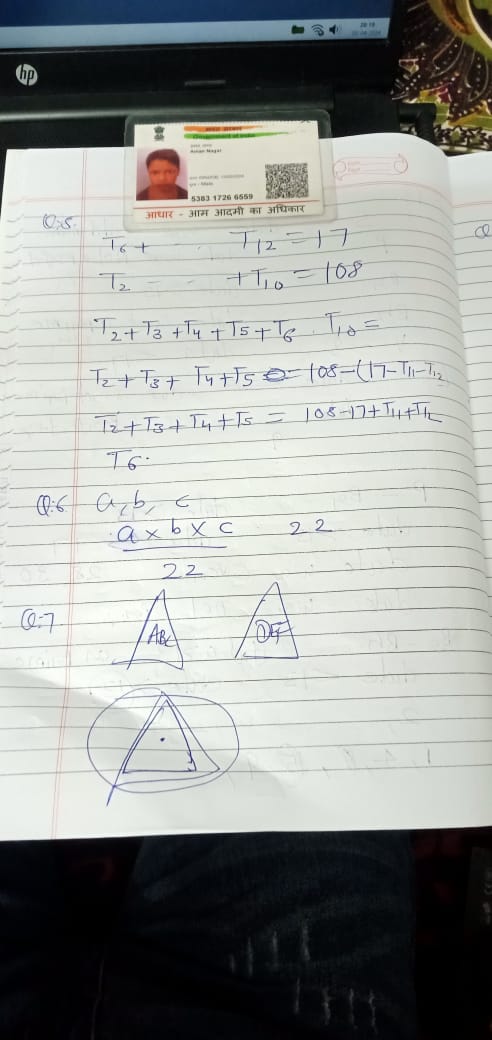 20:19
hp
भारत सरकार
Government of India
Aman Nagar
5383 1726 6559
आधार - आम आदमी का अधिकार
Q:5
T6 + T12 = 17
T2 - - + T10 = 108
T2 + T3 + T4 + T5 + T6 . T10 =
T2 + T3 + T4 + T5 = 108 - (17 - T11 - T12
T2 + T3 + T4 + T5 = 108 - 17 + T11 + T12
T6.
Q:6 a, b, c
a x b x c 22
22
Q:7
ABC DEF